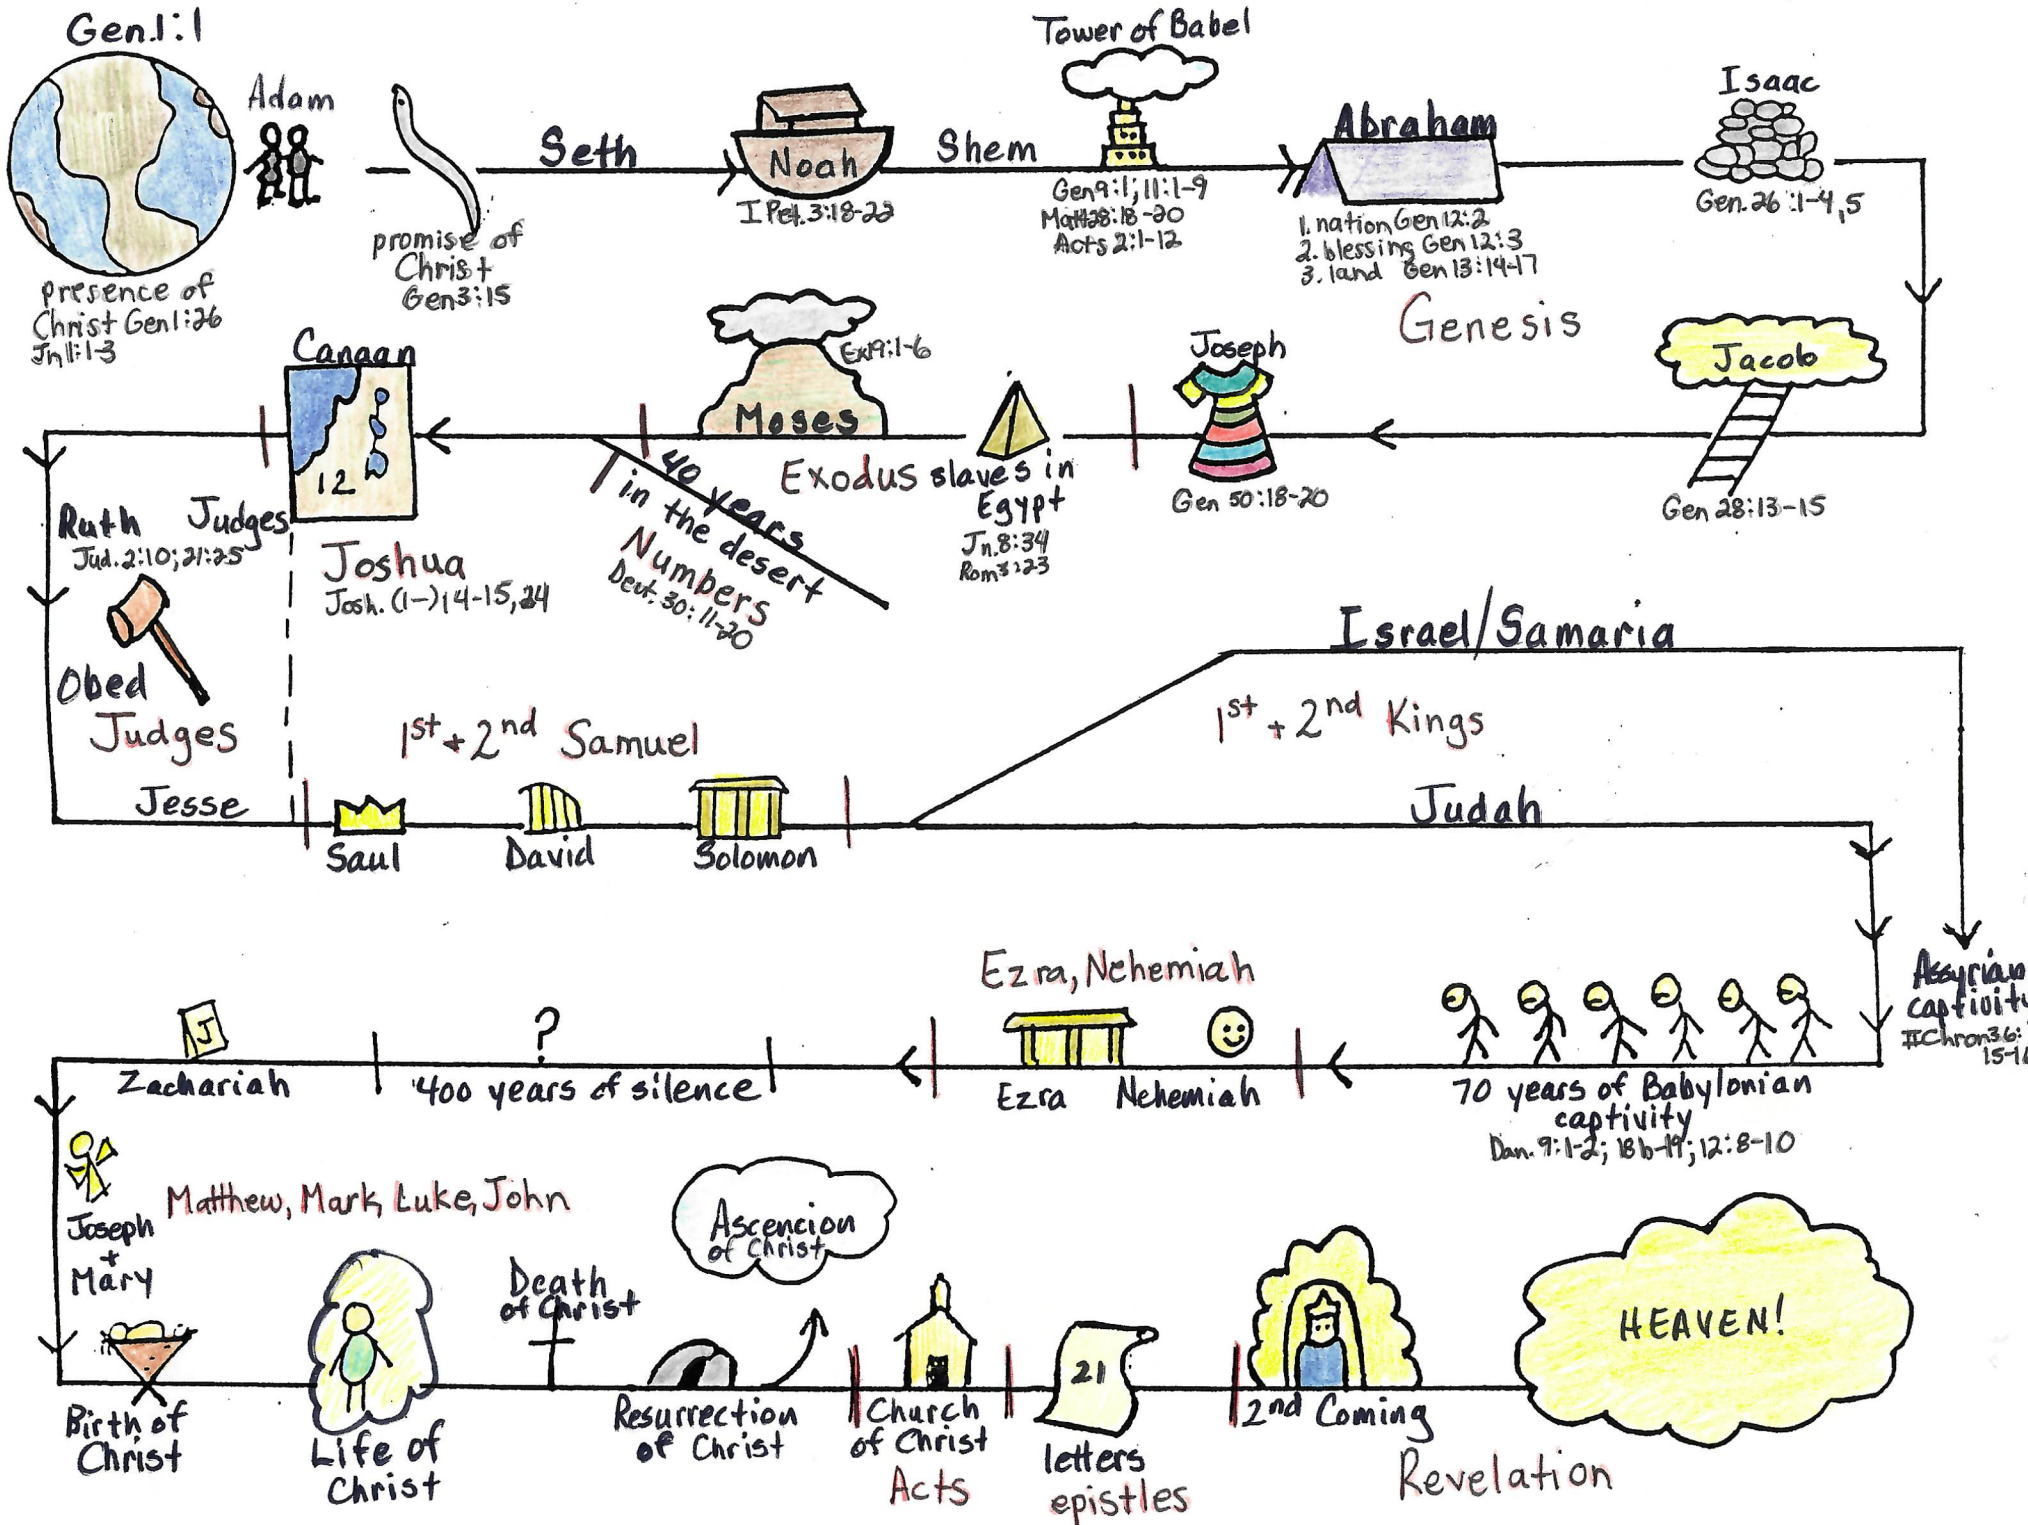 Gen.1:1
Adam
presence of
Christ Gen1:26
Jn1:1-3
promise of
Christ
Gen3:15
Seth
Noah
I Pet. 3:18-22
Shem
Tower of Babel
Gen9:1; 11:1-9
Matt28:18-20
Acts 2:1-12
Abraham
1. nation Gen12:2
2. blessing Gen 12:3
3. land Gen 13:14-17
Isaac
Gen. 26:1-4,5
Genesis
Jacob
Gen 28:13-15
Joseph
Gen 50:18-20
Exodus
slaves in
Egypt
Jn. 8:34
Rom3:23
Moses
Ex19:1-6
40 years
in the desert
Numbers
Deut. 30:11-20
Canaan
12
Joshua
Josh. (1-)14-15,24
Judges
Ruth
Jud. 2:10; 21:25
Obed
Judges
Jesse
1st + 2nd Samuel
Saul
David
Solomon
Israel/Samaria
1st + 2nd Kings
Judah
Assyrian
captivity
II Chron36:
15-16
70 years of Babylonian
captivity
Dan. 9:1-2; 18b-19; 12:8-10
Ezra, Nehemiah
Ezra
Nehemiah
?
400 years of silence
J
Zachariah
Joseph
+
Mary
Matthew, Mark, Luke, John
Birth of
Christ
Life of
Christ
Death
of Christ
Resurrection
of Christ
Ascencion
of Christ
Church
of Christ
Acts
21
letters
epistles
2nd Coming
Revelation
HEAVEN!